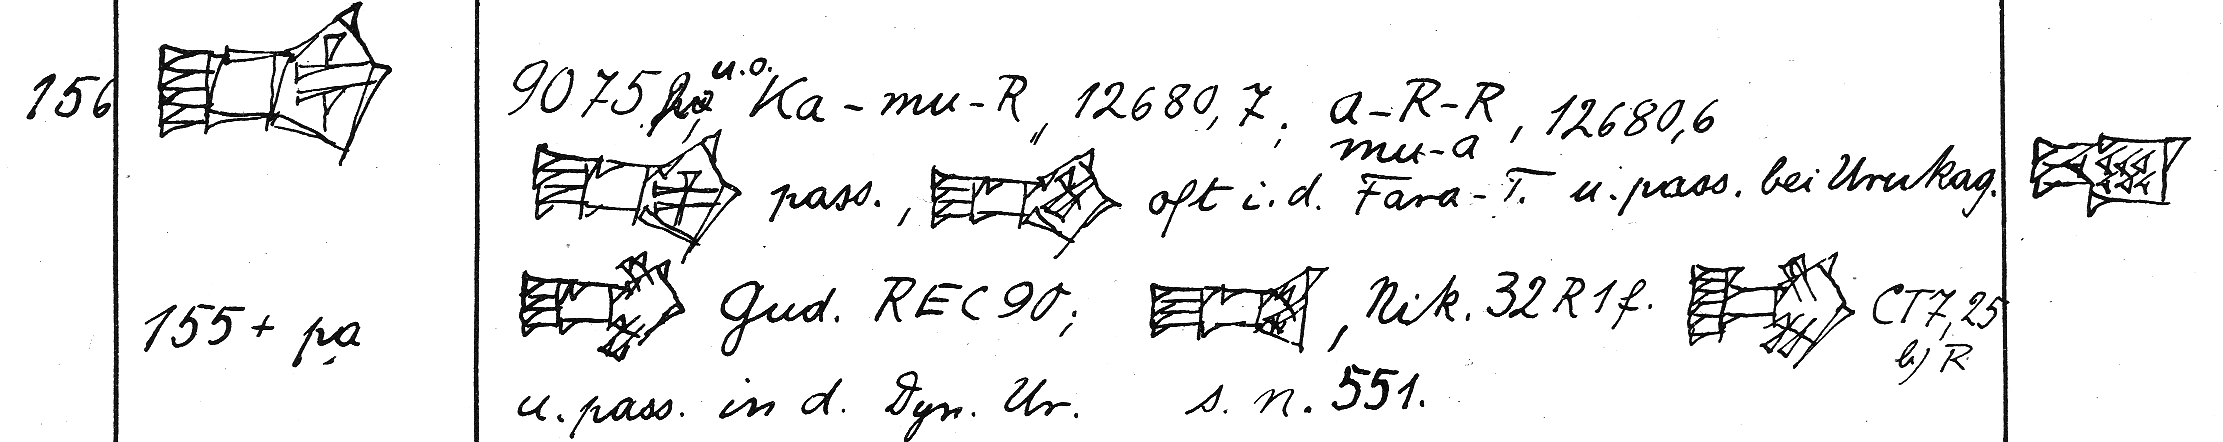 156
9075 u.o. Ka-mu-R,, 12680,7; a-R-R, 12680,6
mu-a
pass., oft i.d. Fara-T. u. pass. bei Urukag.
155 + pa
Gud. REC 90; , Nik. 32 R 1 f. CT 7, 25
b) R.
u. pass. in d. Dyn. Ur. s. n. 551.